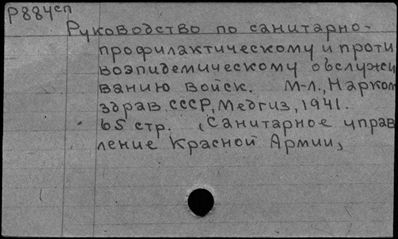 Р884сп
Руководство по санитарно-
профилактическому и проти
воэпидемическому обслужи
ванию войск. М-Л., Нарком
здрав СССР, Медгиз, 1941.
65 стр. (Санитарное управ
ление Красной Армии)